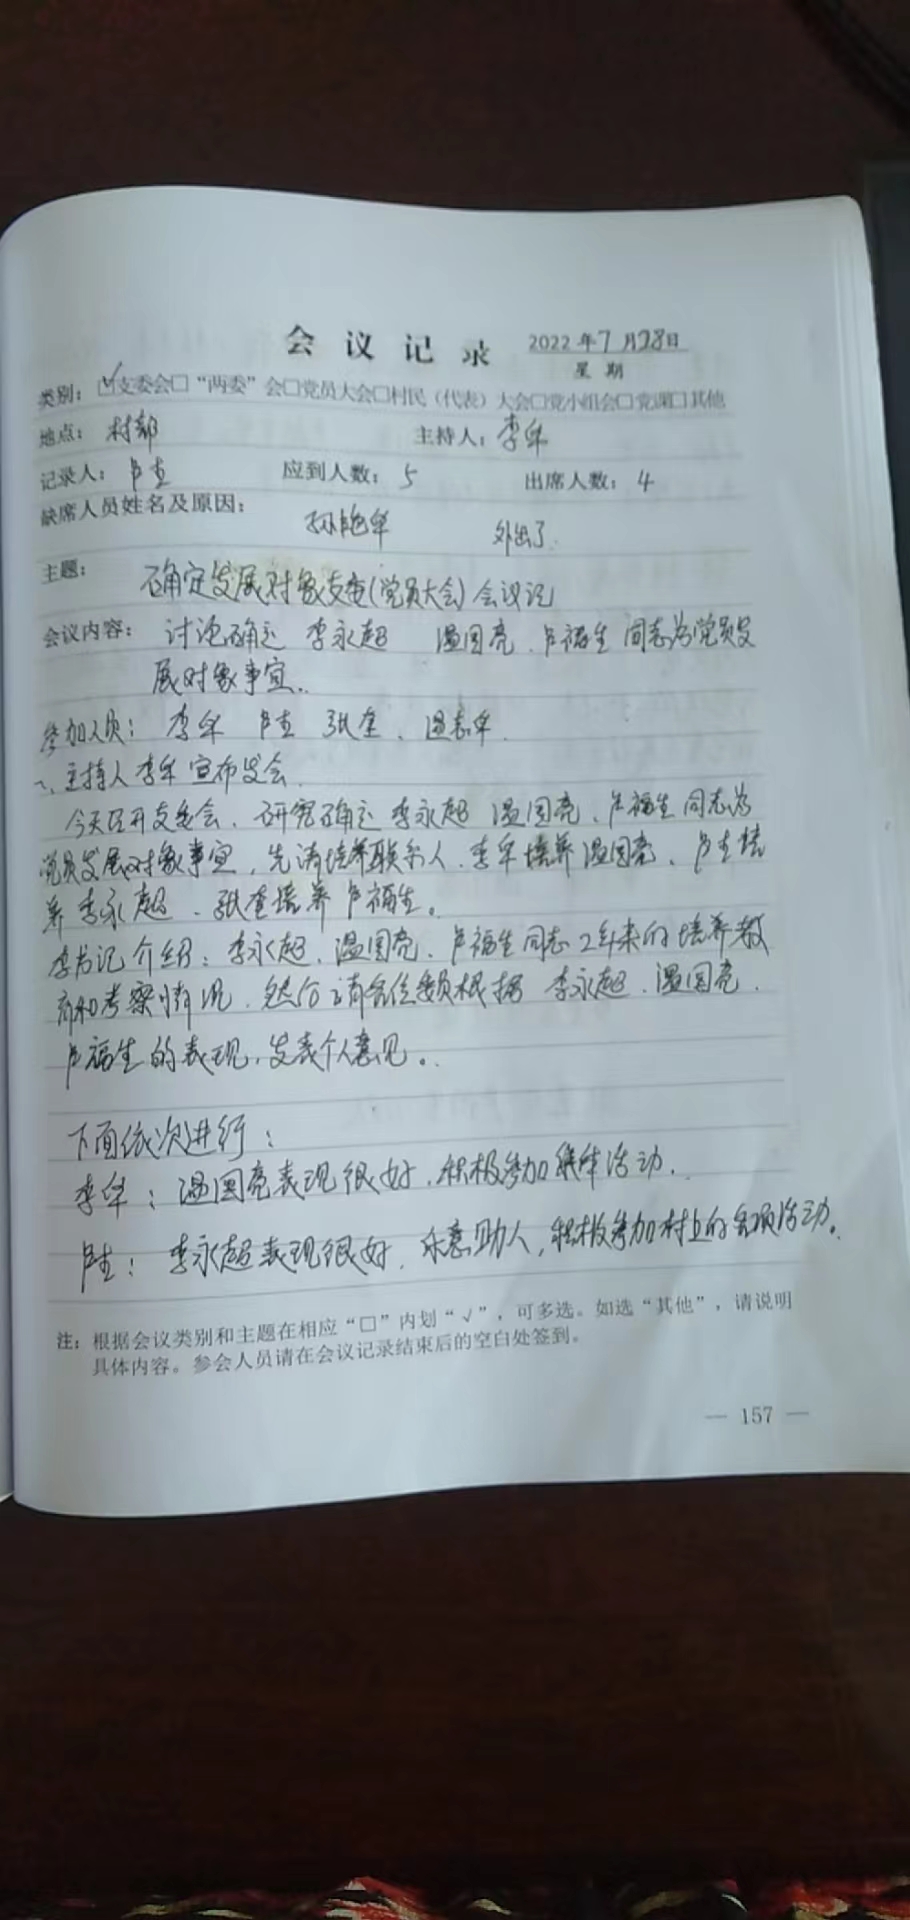 会议记录 2022年7月28日
星期
类别：☑支委会□“两委”会□党员大会□村民（代表）大会□党小组会□党课□其他
地点：村部 主持人：李华
记录人：卢 应到人数：5 出席人数：4
缺席人员姓名及原因：
孙艳华 外出了.
主题：确定发展对象支委(党员大会)会议记
会议内容：讨论确定 李永超 温国亮、卢福生 同志为党员发
展对象事宜..
参加人员：李华 卢 张奎、温 华.
一、主持人李华宣布发会.
今天召开支委会、研究确定 李永超 温国亮、卢福生同志为
党员发展对象事宜, 先请培养联系人、李华培养温国亮、卢 培
养李永超、张奎培养卢福生。
李书记介绍：李永超、温国亮、卢福生同志2年来的培养教
育和考察情况. 然后请各位委员根据 李永超、温国亮、
卢福生的表现, 发表个人意见。.
下面依次进行：
李华：温国亮表现很好, 积极参加集体活动.
卢 ：李永超表现很好, 乐意助人, 积极参加村上的各项活动.
注：根据会议类别和主题在相应“□”内划“√”，可多选。如选“其他”，请说明
具体内容。参会人员请在会议记录结束后的空白处签到。
— 157 —